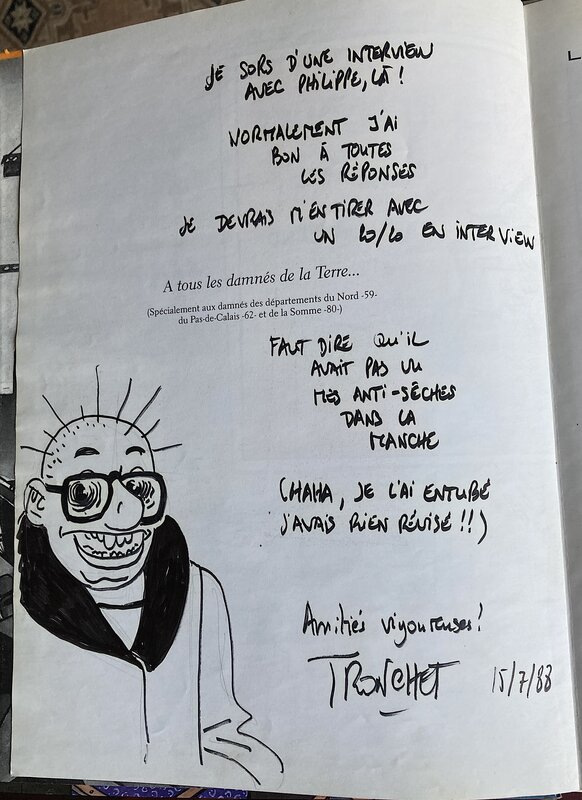 JE SORS D'UNE INTERVIEW
AVEC PHILIPPE, LÀ !
NORMALEMENT J'AI
BON À TOUTES
LES RÉPONSES
JE DEVRAIS M'EN TIRER AVEC
UN 10/10 EN INTERVIEW
A tous les damnés de la Terre...
(Spécialement aux damnés des départements du Nord -59-
du Pas-de-Calais -62- et de la Somme -80-)
FAUT DIRE QU'IL
AVAIT PAS VU
MES ANTI-SÈCHES
DANS LA
MANCHE
(HAHA, JE L'AI ENTUBÉ
J'AVAIS RIEN RÉVISÉ !!)
Amitiés vigoureuses !
TRONCHET
15/7/88